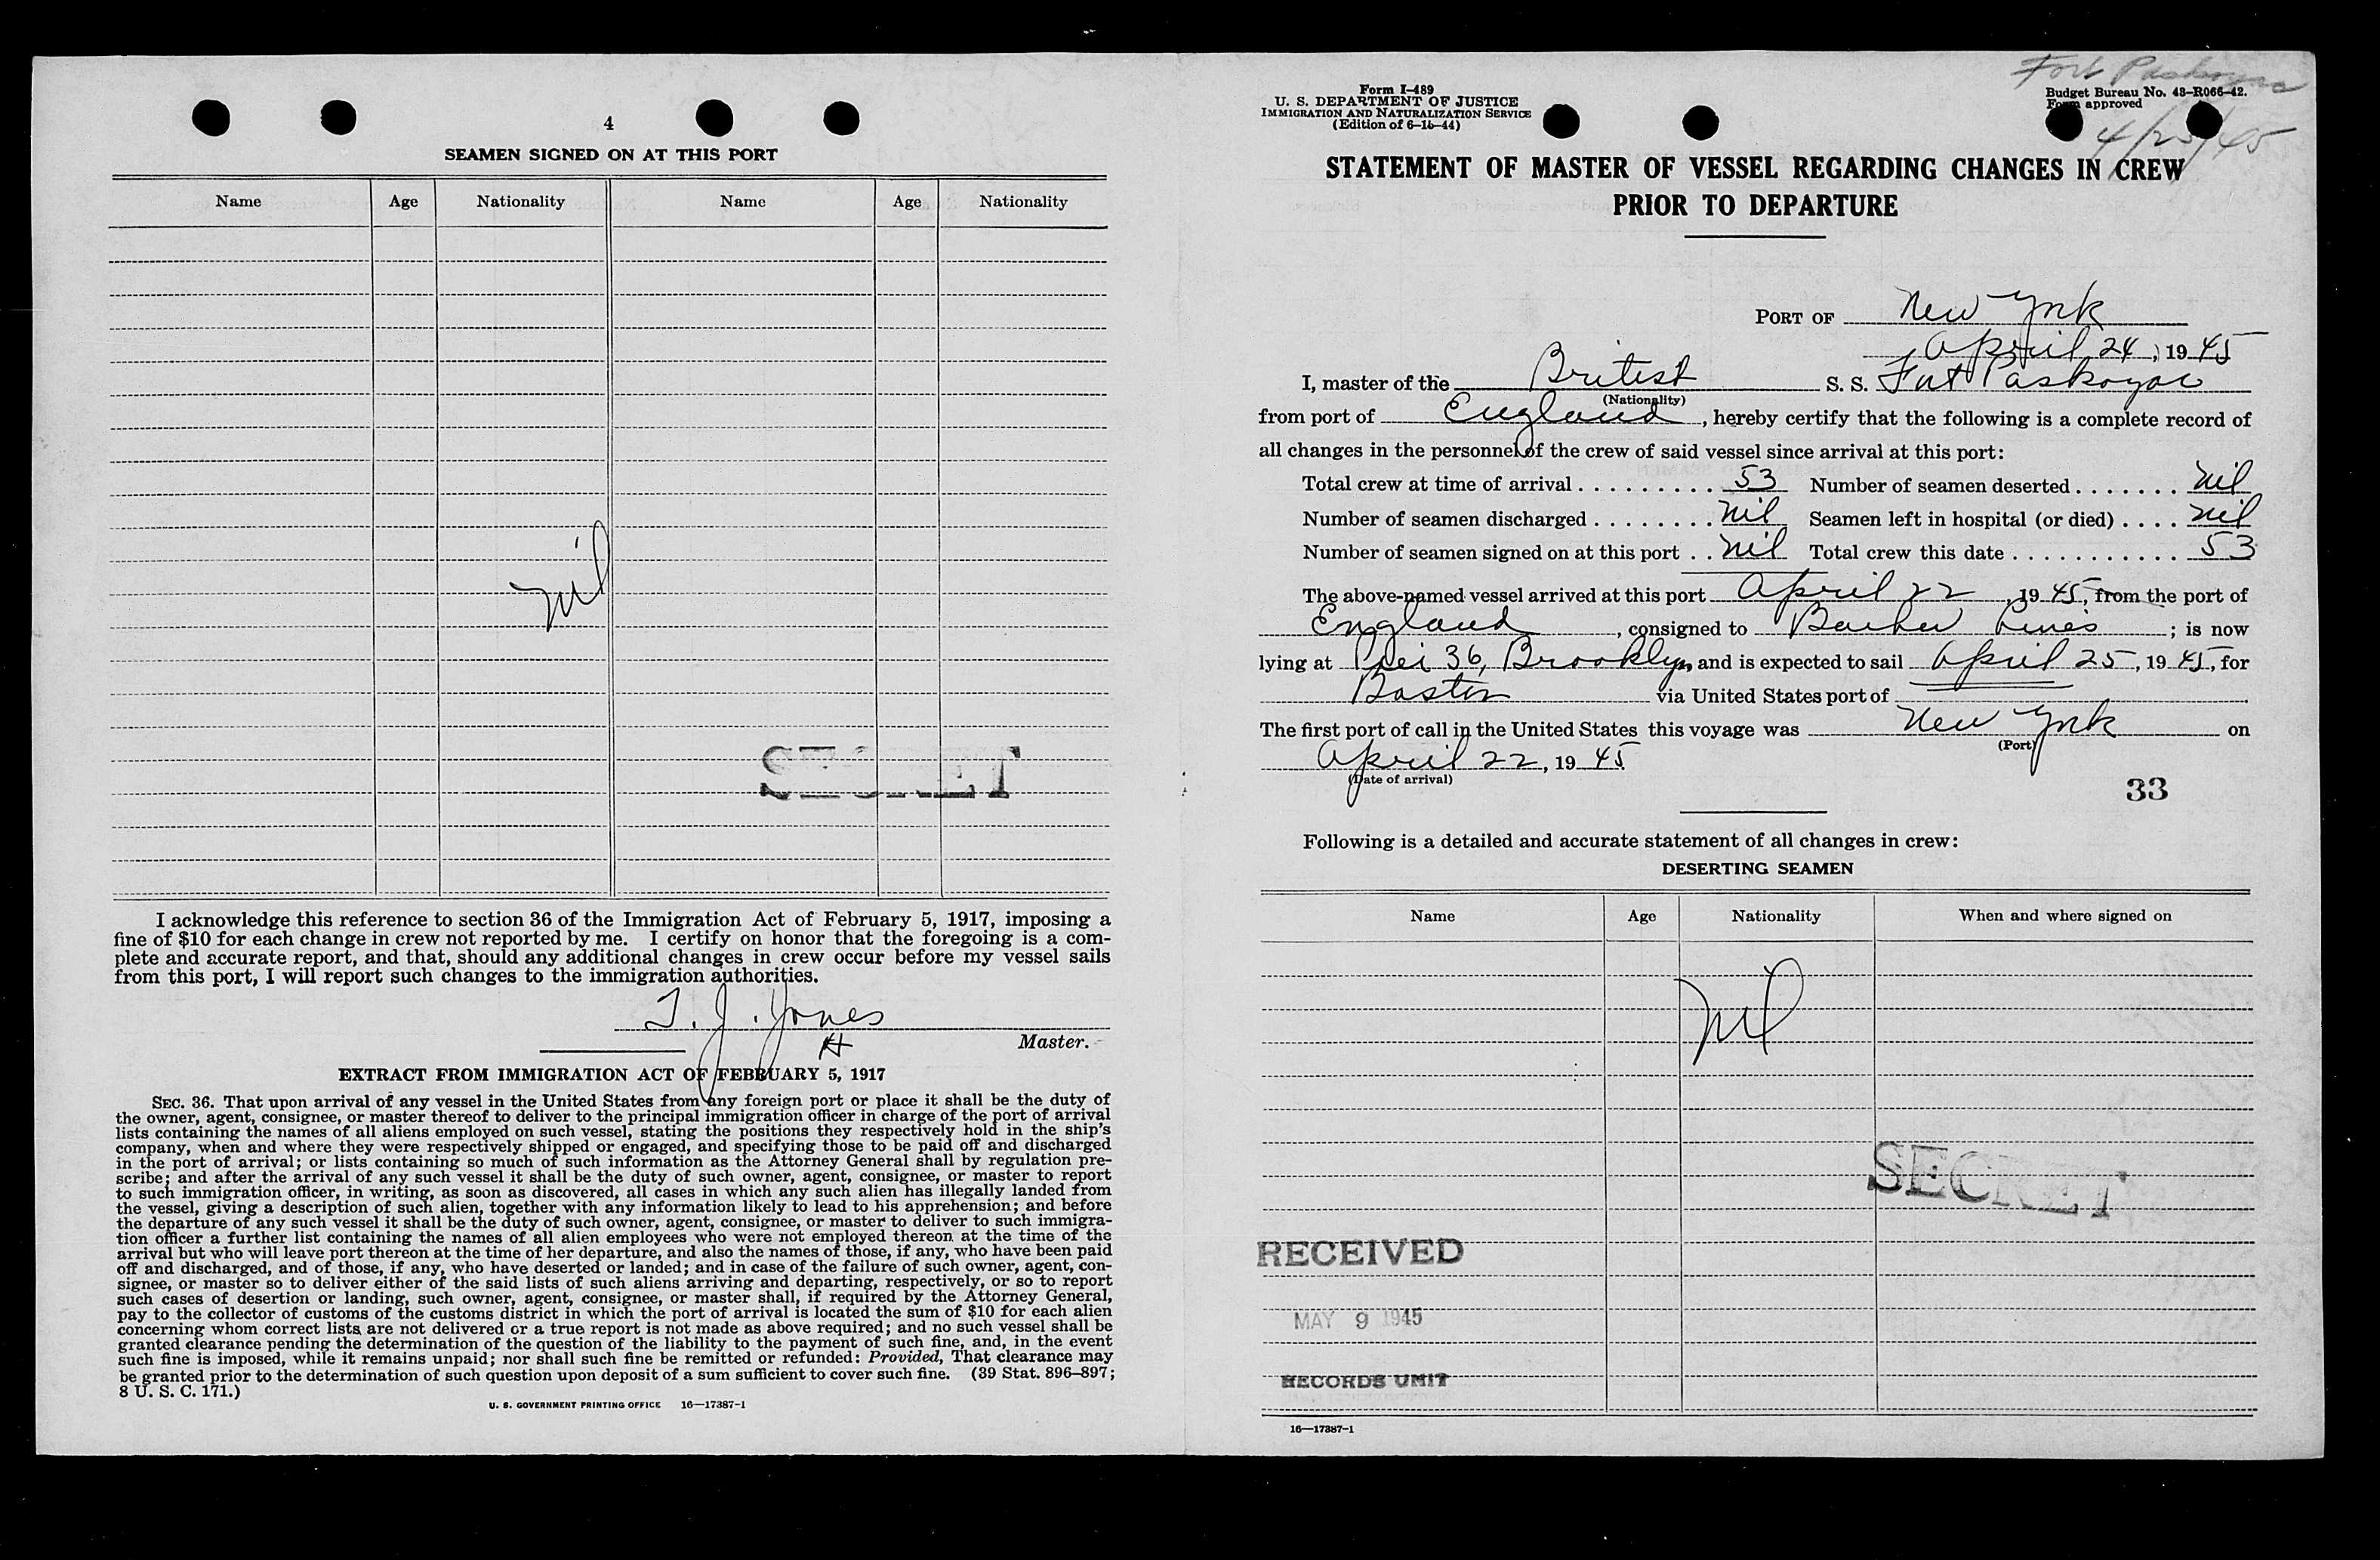 4
SEAMEN SIGNED ON AT THIS PORT
Name Age Nationality Name Age Nationality
nil
SECRET
I acknowledge this reference to section 36 of the Immigration Act of February 5, 1917, imposing a
fine of $10 for each change in crew not reported by me. I certify on honor that the foregoing is a com-
plete and accurate report, and that, should any additional changes in crew occur before my vessel sails
from this port, I will report such changes to the immigration authorities.
T. J. Jones
Master.
EXTRACT FROM IMMIGRATION ACT OF FEBRUARY 5, 1917
SEC. 36. That upon arrival of any vessel in the United States from any foreign port or place it shall be the duty of
the owner, agent, consignee, or master thereof to deliver to the principal immigration officer in charge of the port of arrival
lists containing the names of all aliens employed on such vessel, stating the positions they respectively hold in the ship's
company, when and where they were respectively shipped or engaged, and specifying those to be paid off and discharged
in the port of arrival; or lists containing so much of such information as the Attorney General shall by regulation pre-
scribe; and after the arrival of any such vessel it shall be the duty of such owner, agent, consignee, or master to report
to such immigration officer, in writing, as soon as discovered, all cases in which any such alien has illegally landed from
the vessel, giving a description of such alien, together with any information likely to lead to his apprehension; and before
the departure of any such vessel it shall be the duty of such owner, agent, consignee, or master to deliver to such immigra-
tion officer a further list containing the names of all alien employees who were not employed thereon at the time of the
arrival but who will leave port thereon at the time of her departure, and also the names of those, if any, who have been paid
off and discharged, and of those, if any, who have deserted or landed; and in case of the failure of such owner, agent, con-
signee, or master so to deliver either of the said lists of such aliens arriving and departing, respectively, or so to report
such cases of desertion or landing, such owner, agent, consignee, or master shall, if required by the Attorney General,
pay to the collector of customs of the customs district in which the port of arrival is located the sum of $10 for each alien
concerning whom correct lists are not delivered or a true report is not made as above required; and no such vessel shall be
granted clearance pending the determination of the question of the liability to the payment of such fine, and, in the event
such fine is imposed, while it remains unpaid; nor shall such fine be remitted or refunded: Provided, That clearance may
be granted prior to the determination of such question upon deposit of a sum sufficient to cover such fine. (39 Stat. 896–897;
8 U. S. C. 171.)
U. S. GOVERNMENT PRINTING OFFICE 16—17387-1
Fort Paskoyac
Form I-489
U. S. DEPARTMENT OF JUSTICE
IMMIGRATION AND NATURALIZATION SERVICE
(Edition of 6-15-44)
Budget Bureau No. 43-R066-42.
Form approved
4/25/45
STATEMENT OF MASTER OF VESSEL REGARDING CHANGES IN CREW
PRIOR TO DEPARTURE
PORT OF New York
April 24, 1945
I, master of the British S. S. Fort Paskoyac
(Nationality)
from port of England, hereby certify that the following is a complete record of
all changes in the personnel of the crew of said vessel since arrival at this port:
Total crew at time of arrival . . . . . . . . . . 53 Number of seamen deserted . . . . . . . nil
Number of seamen discharged . . . . . . . . nil Seamen left in hospital (or died) . . . . nil
Number of seamen signed on at this port . . nil Total crew this date . . . . . . . . . . . 53
The above-named vessel arrived at this port April 22, 1945, from the port of
England, consigned to Barber Lines; is now
lying at Pier 36, Brooklyn, and is expected to sail April 25, 1945, for
Boston via United States port of
The first port of call in the United States this voyage was New York on
(Port)
April 22, 1945
(Date of arrival)
33
Following is a detailed and accurate statement of all changes in crew:
DESERTING SEAMEN
Name Age Nationality When and where signed on
Nil
SECRET
RECEIVED
MAY 9 1945
RECORDS UNIT
16—17387-1